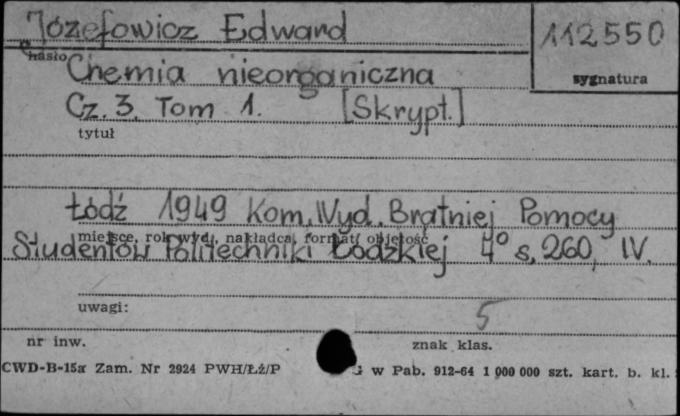 Józefowicz Edward
112550
hasło
sygnatura
Chemia nieorganiczna
Cz. 3. Tom 1. [Skrypt.]
tytuł
Łódź 1949 Kom. Wyd. Bratniej Pomocy
miejsce, rok wyd., nakładca, format, objętość
Studentów Politechniki Łódzkiej 4° s. 260, IV.
uwagi:
5
nr inw.
znak klas.
CWD-B-15a Zam. Nr 2924 PWH/Łż/P G w Pab. 912-64 1 000 000 szt. kart. b. kl.